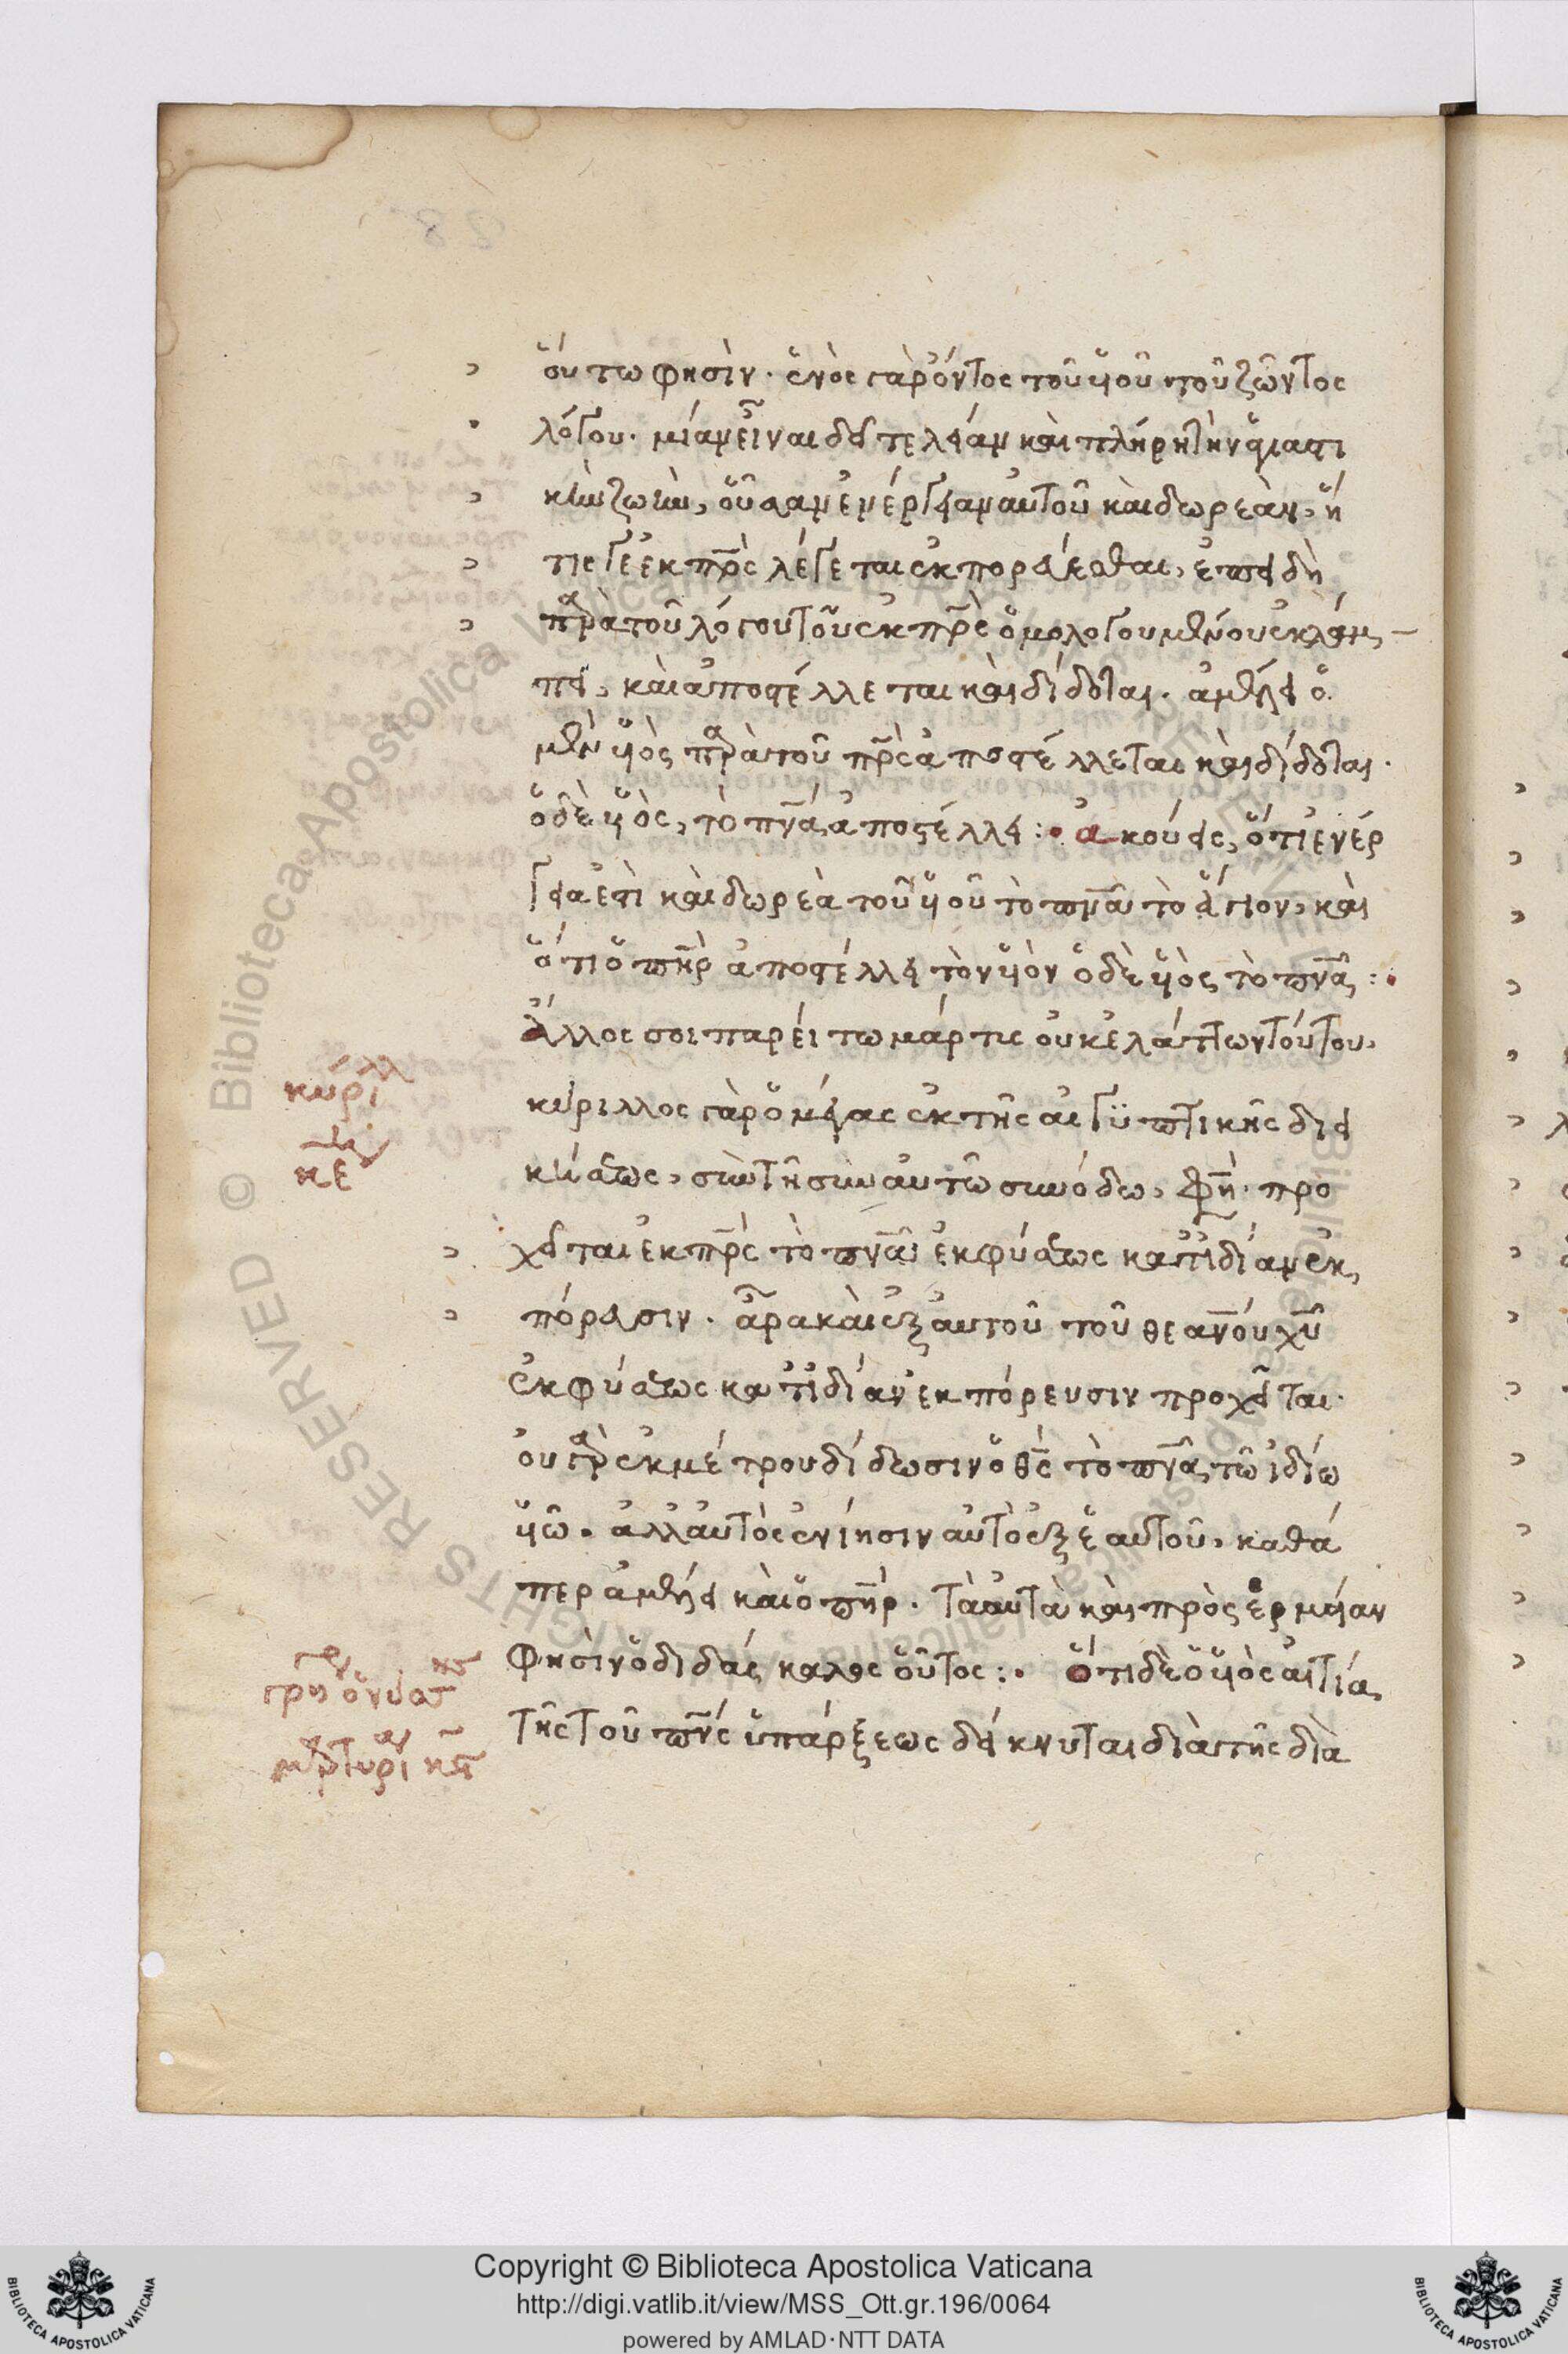 οὕτω φησίν· ἑνὸς γὰρ ὄντος τοῦ υἱοῦ τοῦ ζῶντος
λόγου· μίαν εἶναι δεῖ τελείαν καὶ πλήρη τὴν ἁγιαστι
κὴν ζωὴν, οὖσαν ἐνέργειαν αὐτοῦ καὶ δωρεὰν, ἥ
τις γε ἐκ πρς λέγεται ἐκπορεύεσθαι, ἐπειδὴ
παρὰ τοῦ λόγου τοῦ ἐκ πρς ὁμολογουμένου ἐκλάμ
πει, καὶ ἀποστέλλεται καὶ δίδοται. ἀμέλει ὁ
μὲν υἱὸς παρὰ τοῦ πρς ἀποστέλλεται καὶ δίδοται.
ὁ δὲ υἱὸς, τὸ πνα ἀποστέλλει :· ἀκούεις, ὅτι ἐνέρ
γεια ἐστὶ καὶ δωρεὰ τοῦ υἱοῦ τὸ πνα τὸ ἅγιον, καὶ
ὅτι ὁ πηρ ἀποστέλλει τὸν υἱόν ὁ δὲ υἱὸς τὸ πνα :·
Ἄλλος σοι παρείτω μάρτυς οὐκ ἐλάττων τούτου,
κύριλλος γὰρ ὁ μέγας ἐκ τῆς αἰγϋπτικῆς διοι
κήσεως, σὺν τῇ σὺν αὐτῶ συνόδω, φη· προ
χεῖται ἐκ πρς τὸ πνα ἐκφύσεως κατ' ἰδίαν ἐκ
πόρευσιν. ἆρα καὶ ἐξ αὐτοῦ τοῦ θεανου χυ
ἐκφύσεως κατ' ἰδίαν ἐκπόρευσιν προχεῖται·
οὐ γὰρ ἐκ μέτρου δίδωσιν ὁ θς τὸ πνα τῶ ἰδίω
υἱῶ. ἀλλ' αὐτὸς ἐνίησιν αὐτὸ ἐξ ἑαυτοῦ, καθά
περ ἀμέλει καὶ ὁ πηρ. Τὰ αὐτὰ καὶ πρὸς ἑρμείαν
φησὶν ὁ διδάσκαλος οὗτος :· Ὅτι δὲ ὁ υἱὸς αἰτία
τῆς τοῦ πνς ὑπάρξεως δείκνυται διὰ τῆς διὰ
κυρίλλ
Copyright © Biblioteca Apostolica Vaticana
http://digi.vatlib.it/view/MSS_Ott.gr.196/0064
powered by AMLAD·NTT DATA